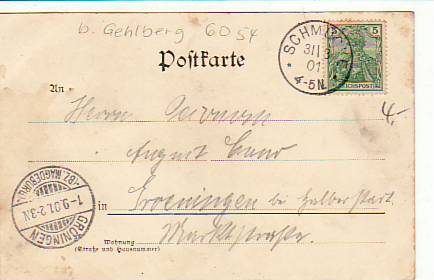 b. Gehlberg 6054
Postkarte
SCHMÜCKE
31 8
01
4-5N.
5
REICHSPOST
4.-
An
Herrn
August
in Groeningen bei Halberstadt
Marktstraße
Wohnung
(Straße und Hausnummer)
GRÖNINGEN
1-9.01.2-3N
*BZ. MAGDEBURG*